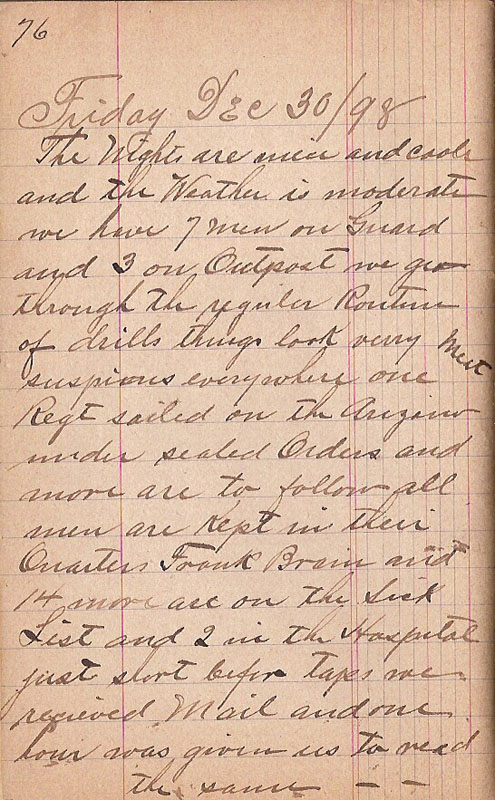 76
Friday Dec 30/98
The Nights are nice and cool
and the Weather is moderate
we have 7 men on Guard
and 3 on Outpost we go
through the reguler Routine
of drills things look verry
suspious everywhere one
Regt sailed on the Arizona
under sealed Orders and
more are to follow all
men are Kept in their
Quarters Frank Brain and
14 more are on the Sick
List and 2 in the Hospital
just short befor taps we
recieved Mail and one
hour was given us to read
the same — —